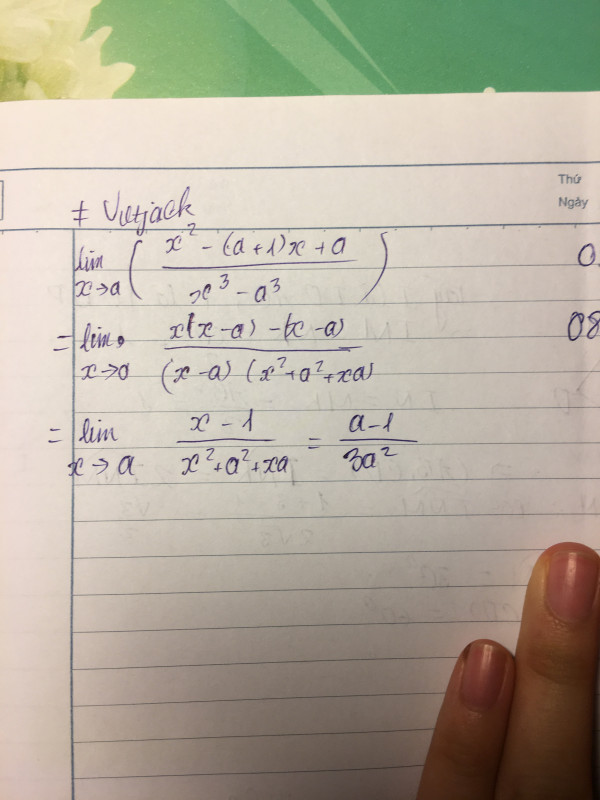 Thứ
Ngày
# Vietjack
lim x→a ( (x² - (a+1)x + a) / (x³ - a³) )
= lim x→a (x(x-a) - (x-a)) / ((x-a)(x²+a²+xa))
= lim x→a (x-1) / (x²+a²+xa) = (a-1) / (3a²)
08